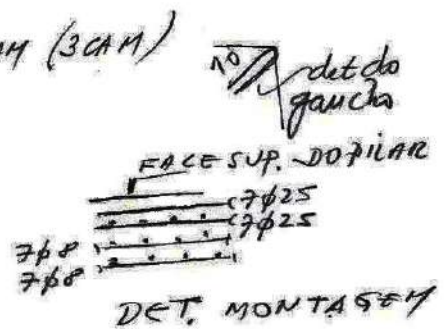 (3CAM)
10
det do
gancho
FACE SUP. DO PILAR
7φ25
7φ25
7φ8
7φ8
DET. MONTAGEM